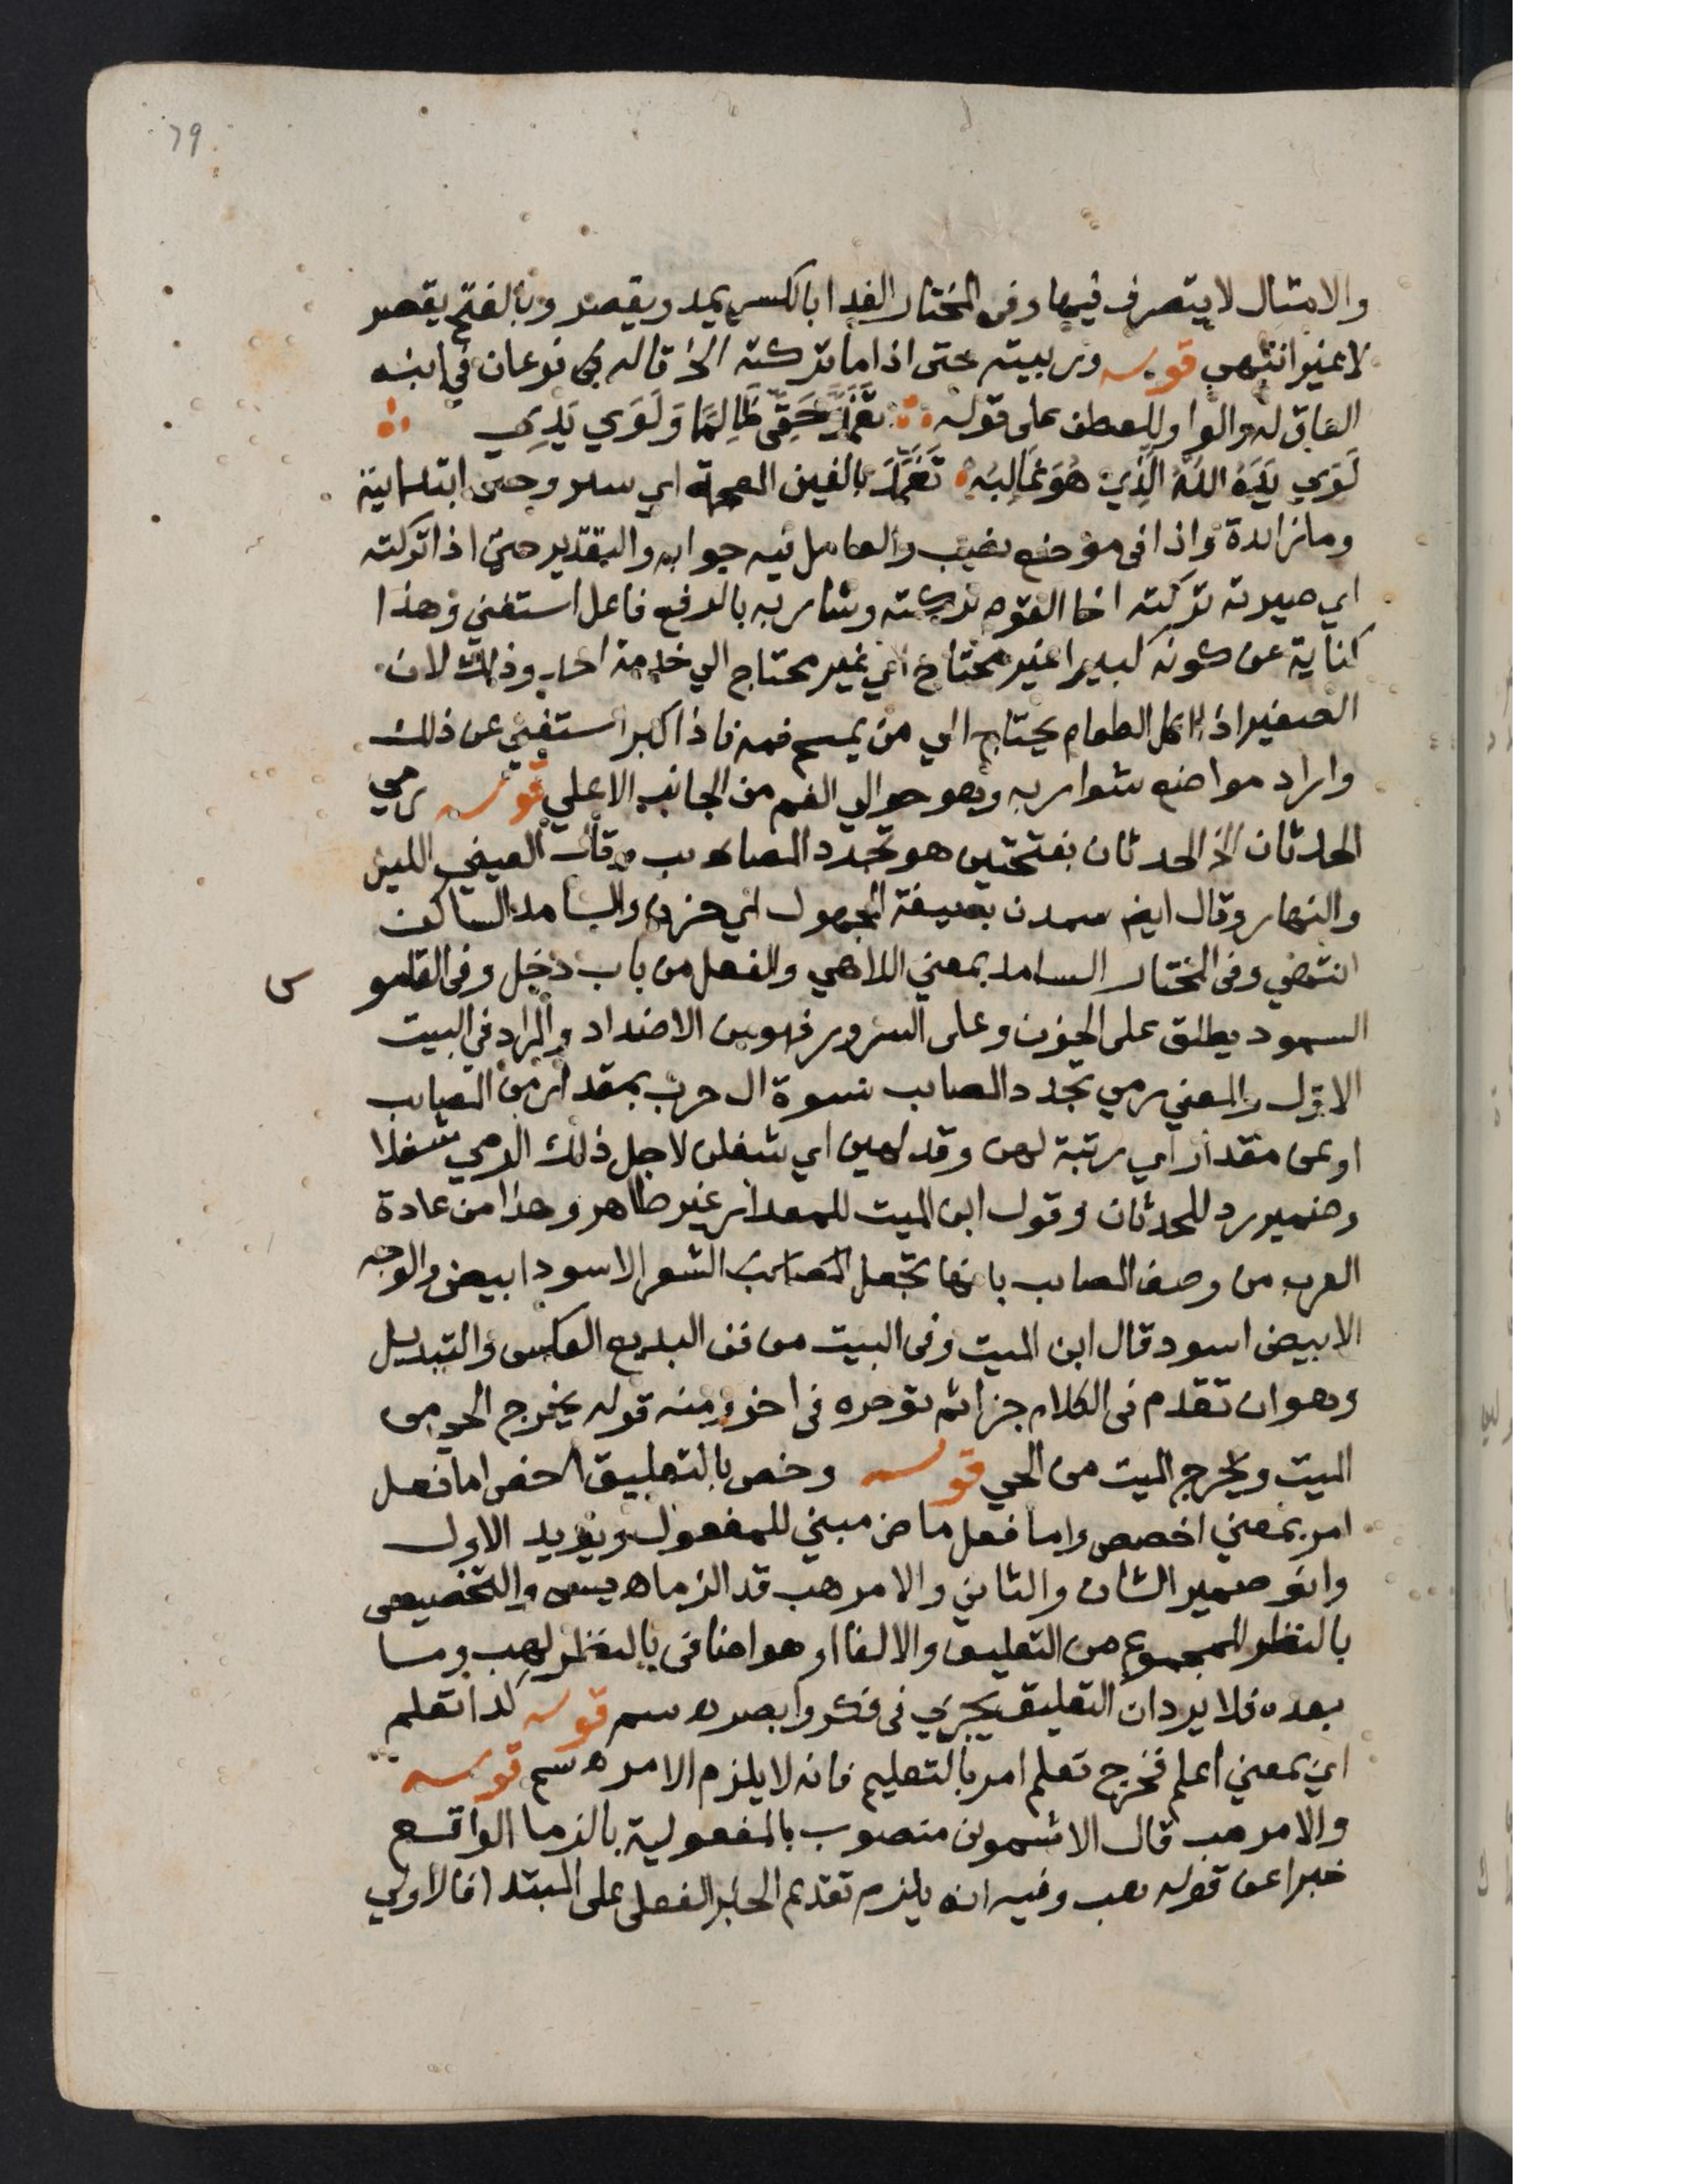 79
والامثال لا يتصرف فيها وفى المختار الفدا بالكسر يمد ويقصر وبالفتح يقصر
لا غير انتهى قوله وربيته حتى اذا ما تركته الخ قاله فرعان في ابنه
العاق له والواو للعطف على قوله تغمد حقي ظالما ولوي يدي
لوي يده الله الذي هو غالبه تغمد بالغين المعجمة اي ستر وحتى ابتدائية
وما زائدة واذا فى موضع نصب والعامل فيه جوابه والتقدير حتى اذا تركته
اي صيرته تركته اخا القوم تركته وشاربه بالرفع فاعل استغني وهذا
كناية عن كونه كبيرا غير محتاج اي غير محتاج الي خدمة احد وذلك لان
الصغير اذا اكل الطعام يحتاج الي من يمسح فمه فاذا كبر استغني عن ذلك
واراد مواضع شواربه وهو حوالي الفم من الجانب الاعلي قوله رمي
الحدثان الخ الحدثان بفتحتين هو تجدد المصايب وقال العيني الليل
والنهار وقال ايضا سمدن بصيغة المجهول اي حزن والسامد الساكت
انتهي وفى المختار السامد بمعني اللاهي والفعل من باب دخل وفى القامو
س
السمود يطلق على الحزن وعلى السرور فهو من الاضداد والمراد في البيت
الاول والمعني رمي تجدد المصايب نسوة ال حرب بمقدار من المصايب
او عن مقدار اي رتبة لهن وقد لهين اي شغلن لاجل ذلك الرمي شغلا
وضمير رد للحدثان وقول ابن الميت للمقدار غير ظاهر وهذا من عادة
العرب من وصف المصايب بانها تجعل المصايب الشعر الاسود ابيض والوجه
الابيض اسود قال ابن الميت وفى البيت من فن البديع العكس والتبديل
وهو ان تقدم فى الكلام جزا ثم توخره فى اخر ومنه قوله يخرج الحي من
الميت ويخرج الميت من الحي قوله وخص بالتعليق الخ خص اما فعل
امر بمعني اخصص واما فعل ماض مبني للمفعول ويؤيد الاول
وانو ضمير الشان والثاني والامر هب قد الزما ه يس والتخصيص
بالنظر للمجموع من التعليق والالغا او هو اضافى بالنظر لهب وما
بعده فلا يرد ان التعليق يجري فى فكر وابصر ه سم قوله كذا تعلم
اي بمعني اعلم فخرج تعلم امر بالتعليم فانه لا يلزم الامر ه سم قوله
والامر هب قال الاشموني منصوب بالمفعولية بالزما الواقع
خبرا عن قوله هب وفيه انه يلزم تقديم الخبر الفعلى على المبتدا فالاولي